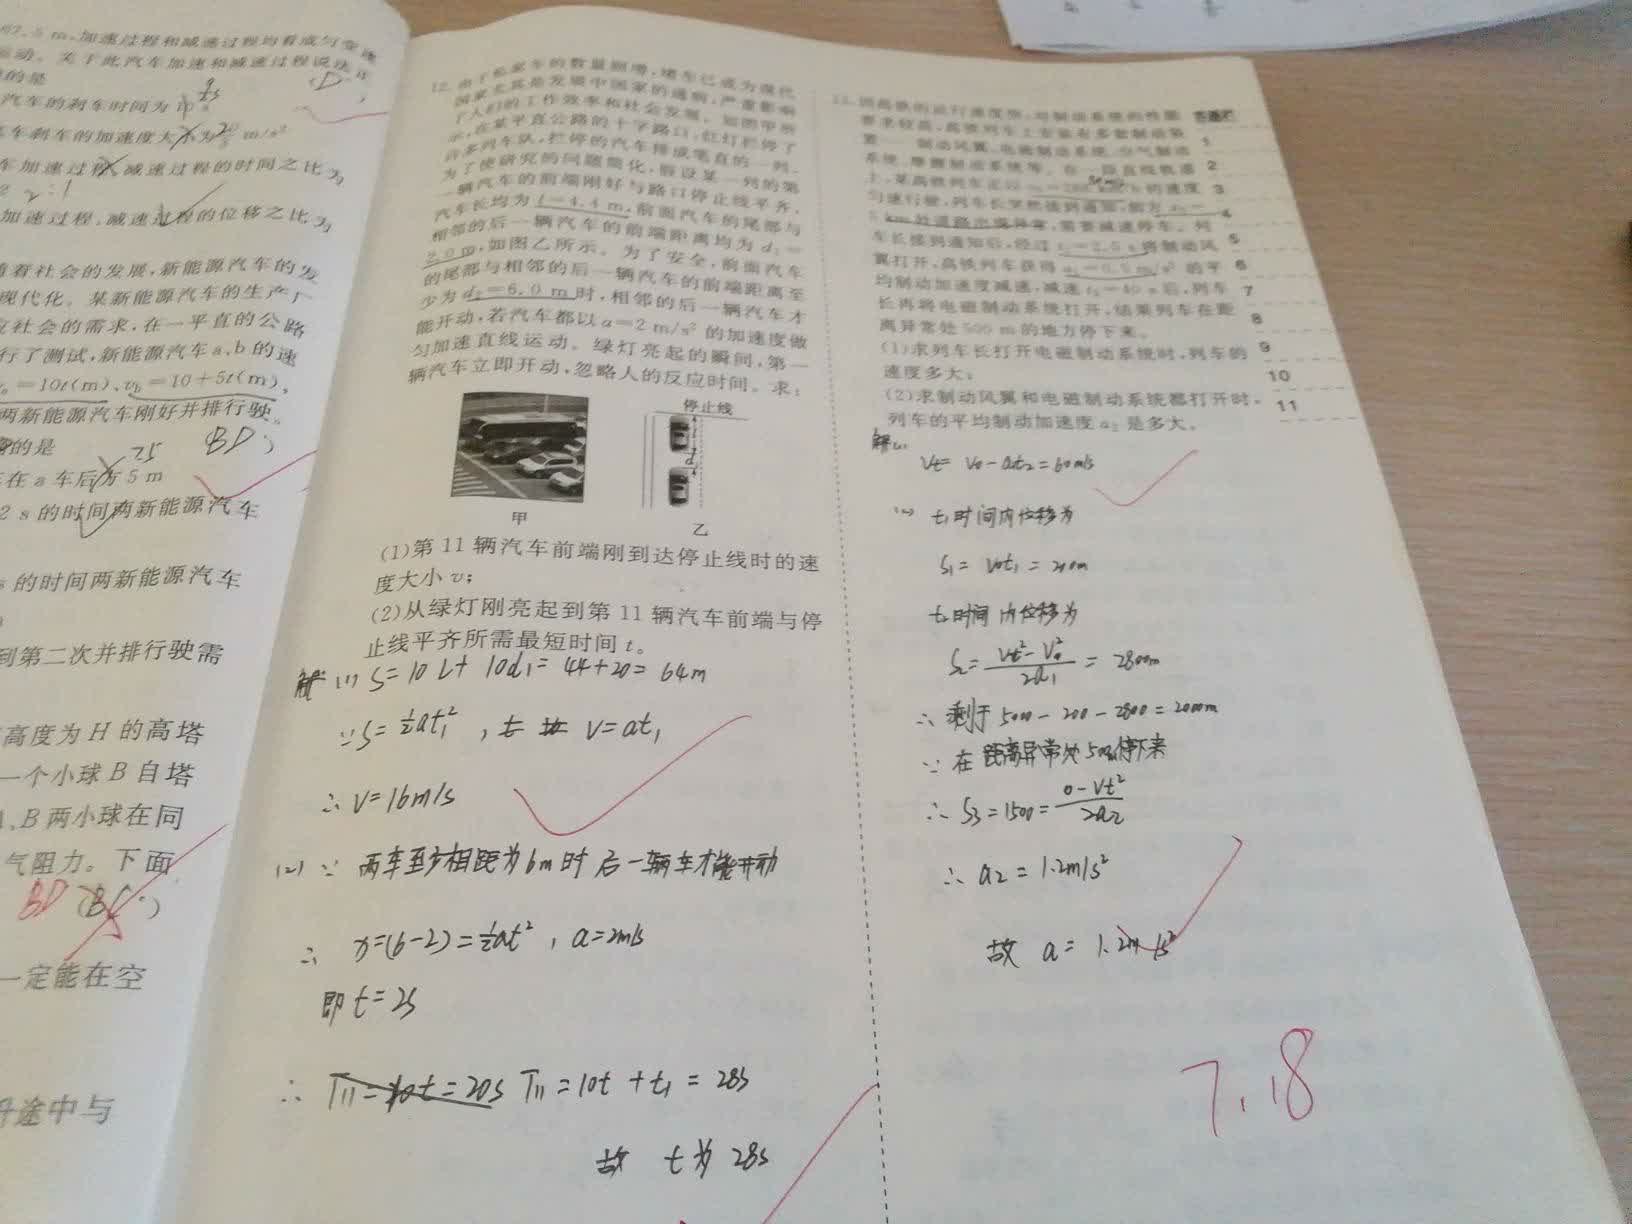 62.5 m,加速过程和减速过程均看成匀变速
运动。关于此汽车加速和减速过程说法正
的是
(D)
汽车的刹车时间为
车刹车的加速度大小为 m/s²
车加速过程、减速过程的时间之比为
2:1
加速过程、减速过程的位移之比为
随着社会的发展,新能源汽车的发
现代化。某新能源汽车的生产厂
应社会的需求,在一平直的公路
行了测试,新能源汽车a、b的速
=10t(m)、v_b=10+5t(m),
两新能源汽车刚好并排行驶。
的是
25
(BD)
在a车后方5 m
2 s的时间两新能源汽车
s的时间两新能源汽车
到第二次并排行驶需
高度为H的高塔
一个小球B自塔
A、B两小球在同
气阻力。下面
BD (BC)
一定能在空
升途中与
12.由于私家车的数量剧增,堵车已成为现代
国家尤其是发展中国家的通病,严重影响
了人们的工作效率和社会发展。如图甲所
示,在某平直公路的十字路口,红灯拦停了
许多列车队,拦停的汽车排成笔直的一列。
为了使研究的问题简化,假设某一列的第
一辆汽车的前端刚好与路口停止线平齐,
汽车长均为l=4.4 m,前面汽车的尾部与
相邻的后一辆汽车的前端距离均为d₁=
2.0 m,如图乙所示。为了安全,前面汽车
的尾部与相邻的后一辆汽车的前端距离至
少为d₂=6.0 m时,相邻的后一辆汽车才
能开动,若汽车都以a=2 m/s²的加速度做
匀加速直线运动。绿灯亮起的瞬间,第一
辆汽车立即开动,忽略人的反应时间。求:
停止线
l
d
甲
乙
(1)第11辆汽车前端刚到达停止线时的速
度大小v;
(2)从绿灯刚亮起到第11辆汽车前端与停
止线平齐所需最短时间t。
解 (1) S=10L+10d₁=44+20=64m
∵S=½at₁² , v=at₁
∴ v=16m/s
(2) ∵ 两车至少相距为6m时 后一辆车才能开动
∴ x=(6-2)=½at² , a=2m/s
即 t=2s
∴ T₁₁=10t=20s T₁₁=10t+t₁=28s
故 t为 28s
13.因高铁的运行速度快,对制动系统的性能
要求较高,高铁列车上安装有多套制动装
置——制动风翼、电磁制动系统、空气制动
系统、摩擦制动系统等。在一段直线轨道
上,某高铁列车正以 的速度
匀速行驶,列车长突然接到通知,前方
5 km处道路出现异常,需要减速停车。列
车长接到通知后,经过t₁=2.5 s将制动风
翼打开,高铁列车获得a₁=0.5 m/s²的平
均制动加速度减速,减速t₂=40 s后,列车
长再将电磁制动系统打开,结果列车在距
离异常处500 m的地方停下来。
(1)求列车长打开电磁制动系统时,列车的
速度多大;
(2)求制动风翼和电磁制动系统都打开时,
列车的平均制动加速度a₂是多大。
解(1)
Vt=V₀-at₂=60m/s
(2) t₁时间内位移为
S₁=V₀t₁=200m
t₂时间内位移为
S₂=(Vt²-V₀²)/2a₁=2800m
∴ 剩于5000-200-2800=2000m
∵ 在 距离异常处500m停下来
∴ S₃=1500=(0-Vt²)/2a₂
∴ a₂=1.2m/s²
故 a=1.2m/s²
7.18
答题栏
1
2
3
4
5
6
7
8
9
10
11